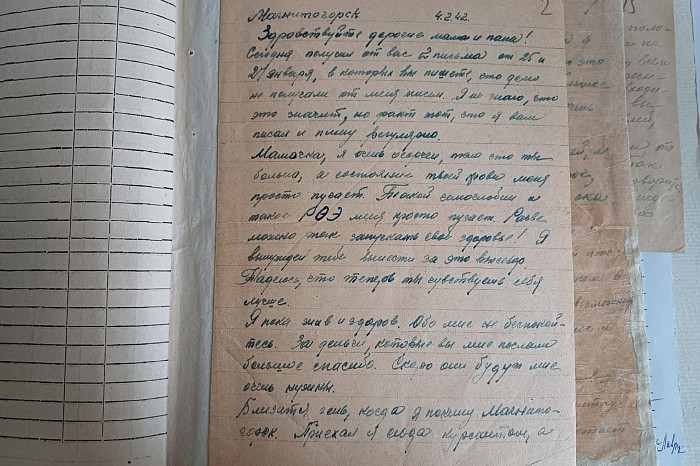 2
Магнитогорск 4.2.42.
Здравствуйте дорогие мама и папа!
Сегодня получил от вас 2 письма от 25 и
27 января, в которых вы пишете, что долго
не получали от меня писем. Я не знаю, что
это значит, но факт тот, что я вам
писал и пишу регулярно.
Мамочка, я очень озабочен, тем что ты
больна, а состояние твоей крови меня
просто пугает. Такой гемоглобин и
такое РОЭ меня просто пугает. Разве
можно так запускать своё здоровье! Я
вынужден тебе вынести за это выговор
Надеюсь, что теперь ты чувствуешь себя
лучше.
Я пока жив и здоров. Обо мне не беспокой-
тесь. За деньги, которые вы мне послали
большое спасибо. Скоро они будут мне
очень нужны.
Близится день, когда я покину Магнито-
горск. Приехал я сюда курсантом, а